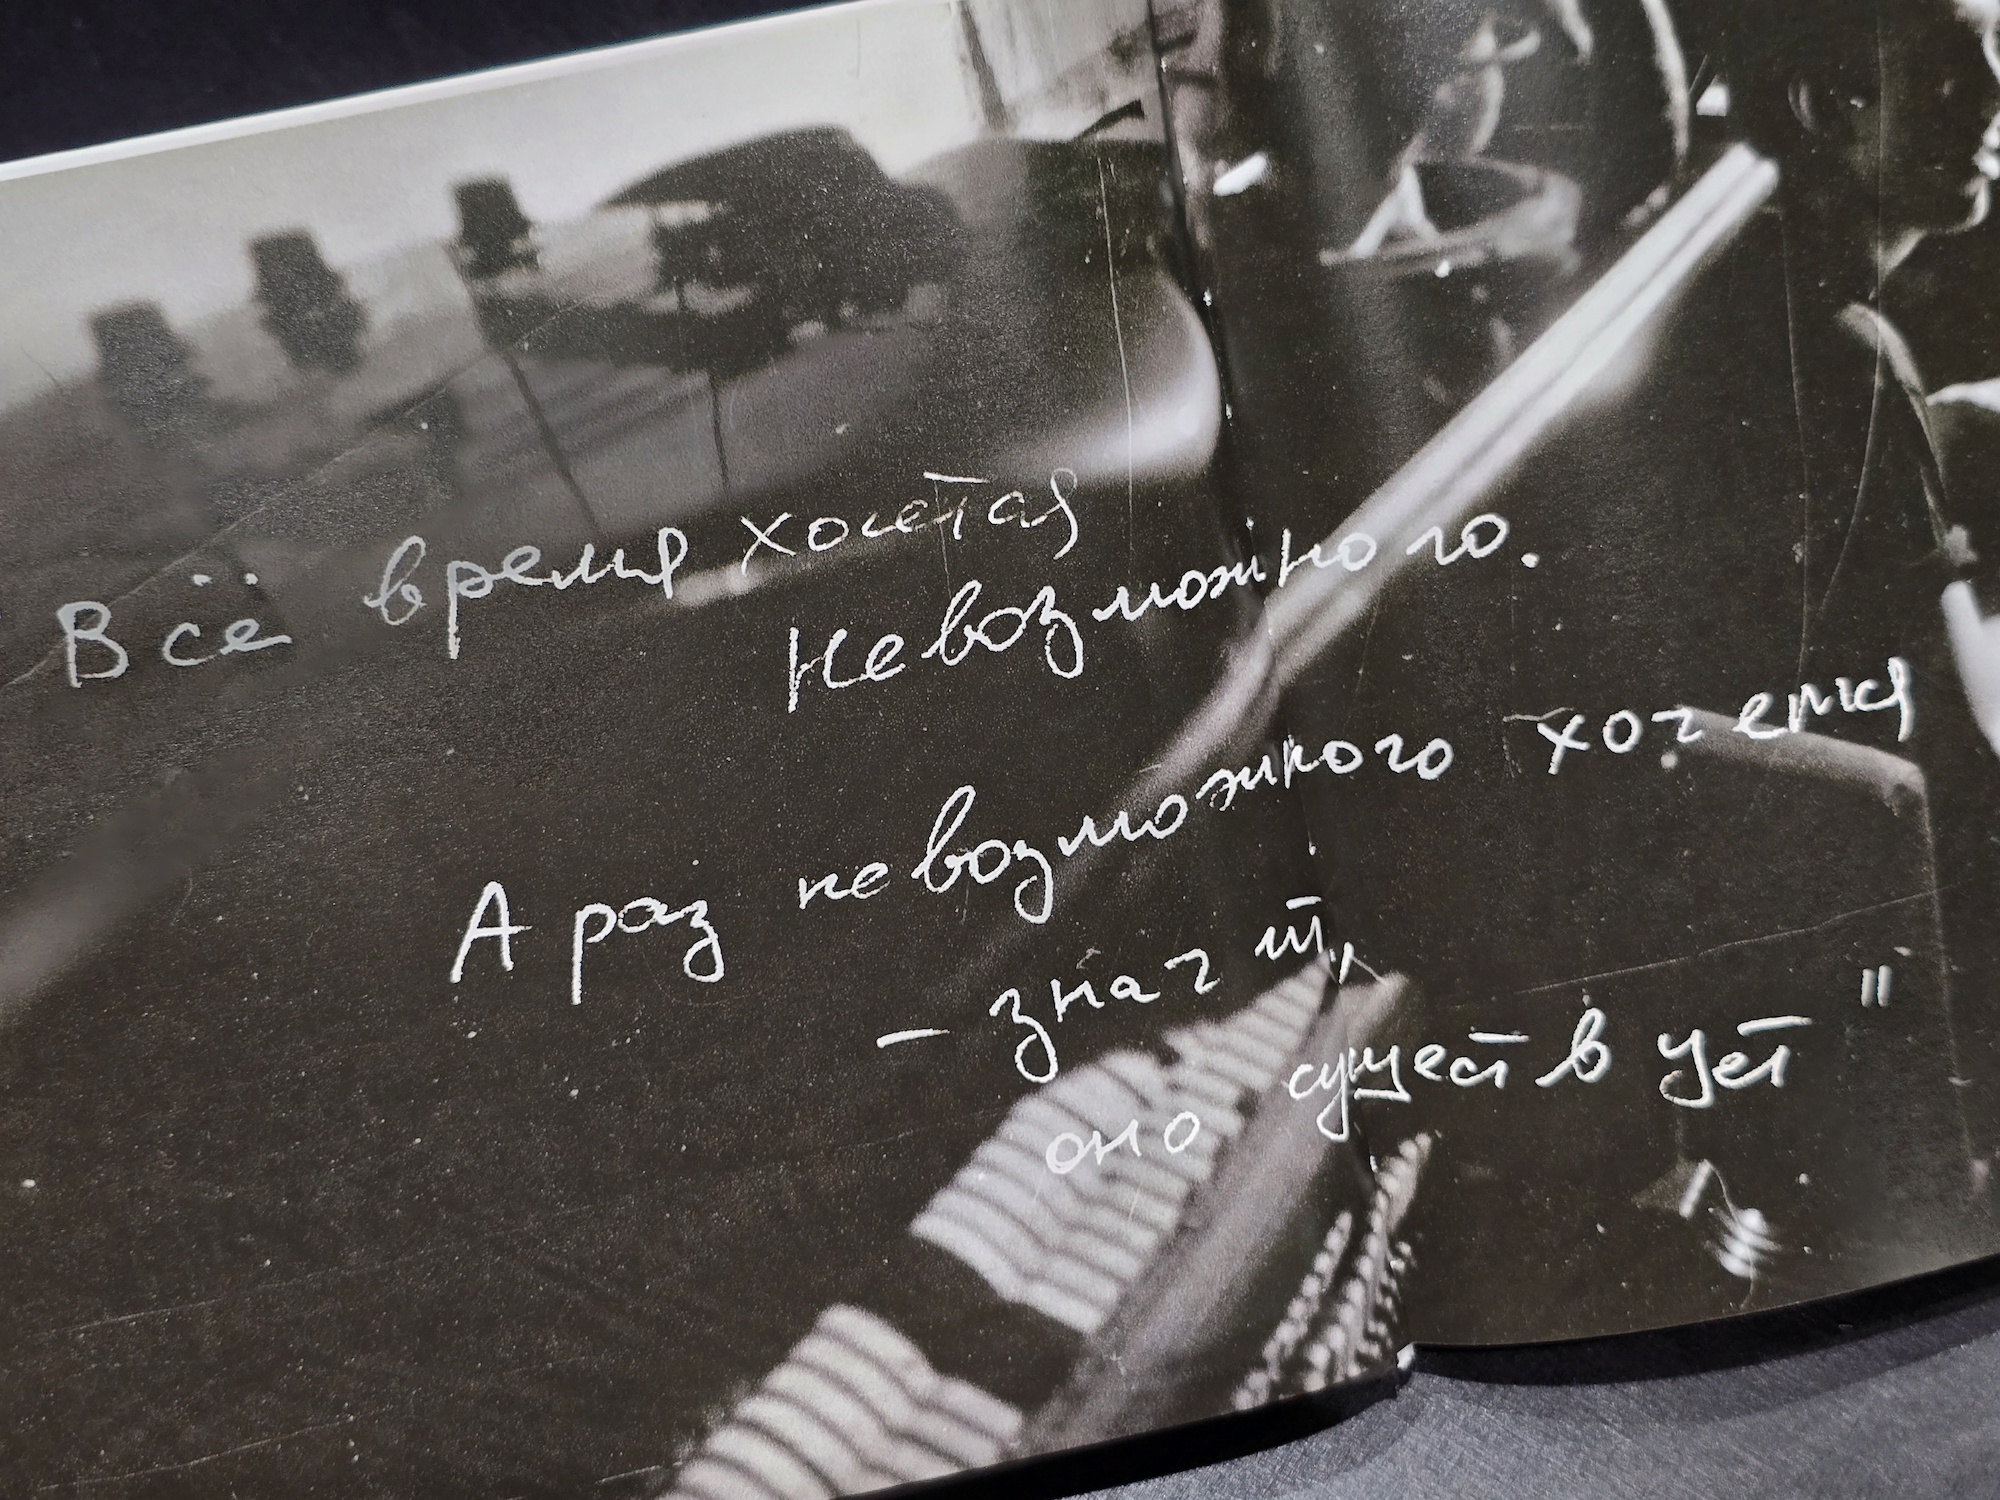 Всё время хочется
Невозможного.
А раз невозможного хочется
– значит,
оно существует"